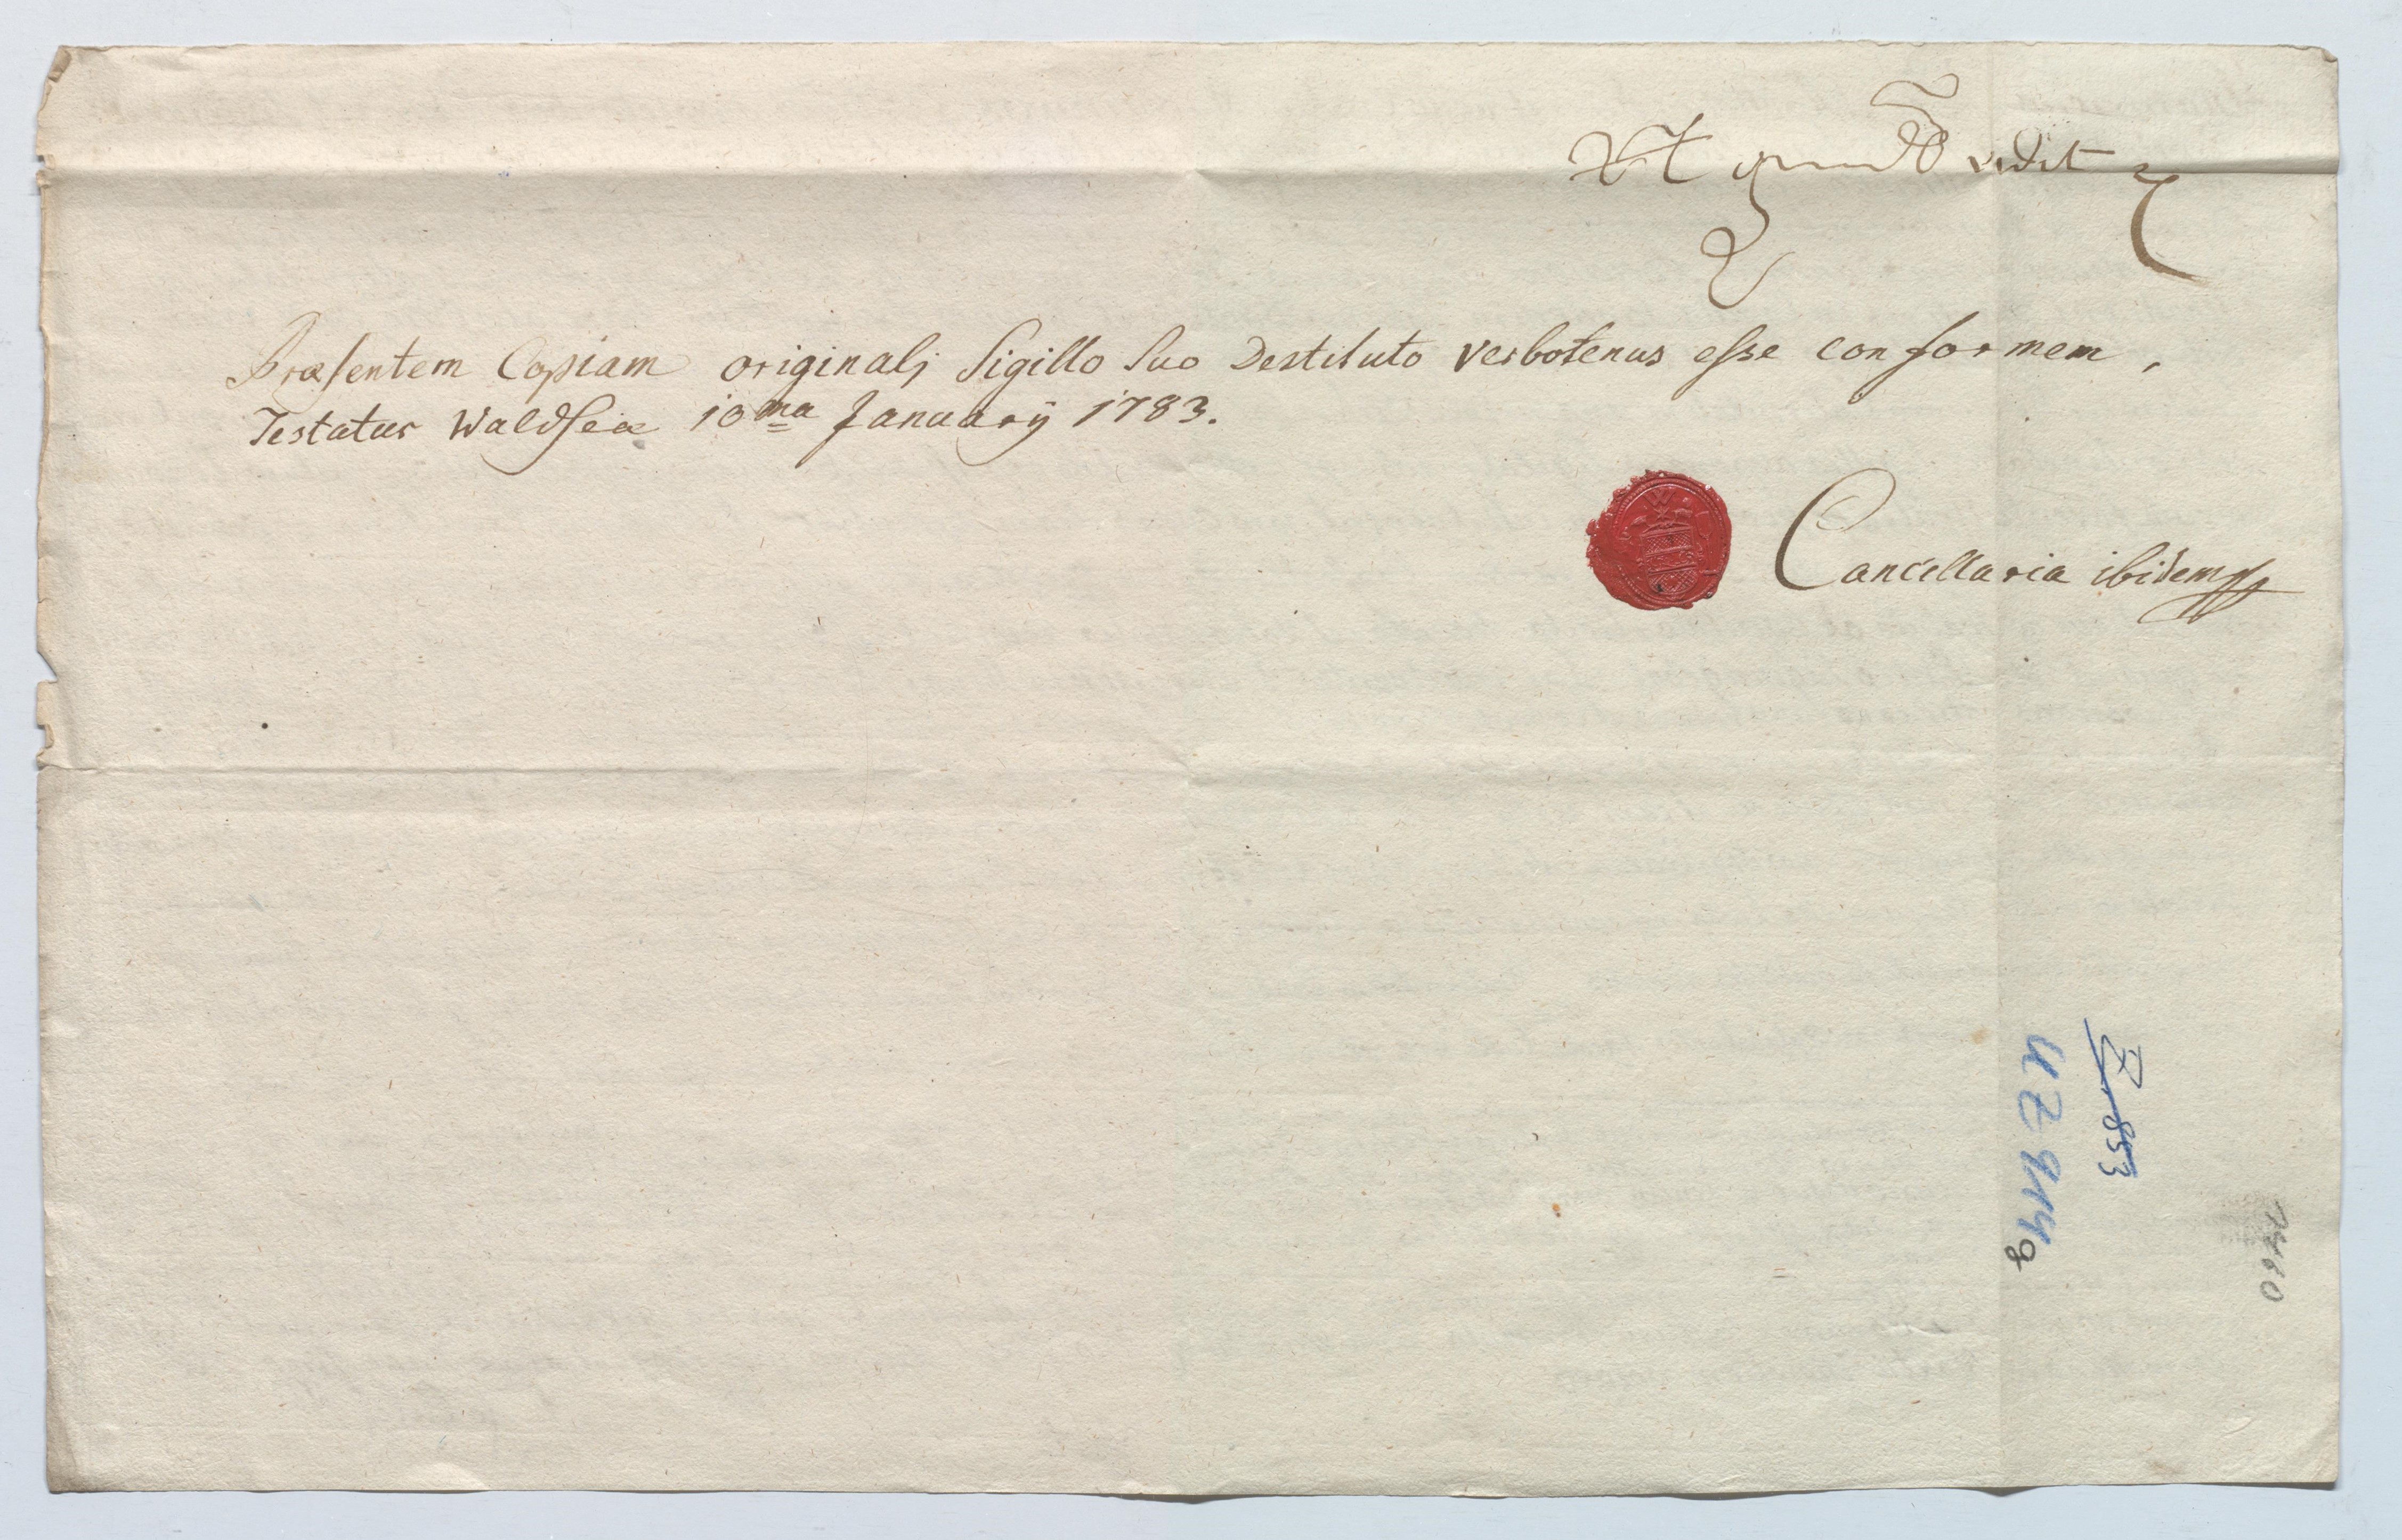 vidit
Præsentem Copiam originalj Sigillo Suo Destituto verbotenus esse conformem,
Testatur Waldseæ 10ma January 1783.
Cancellaria ibidem
853
UZ 914
g
7460